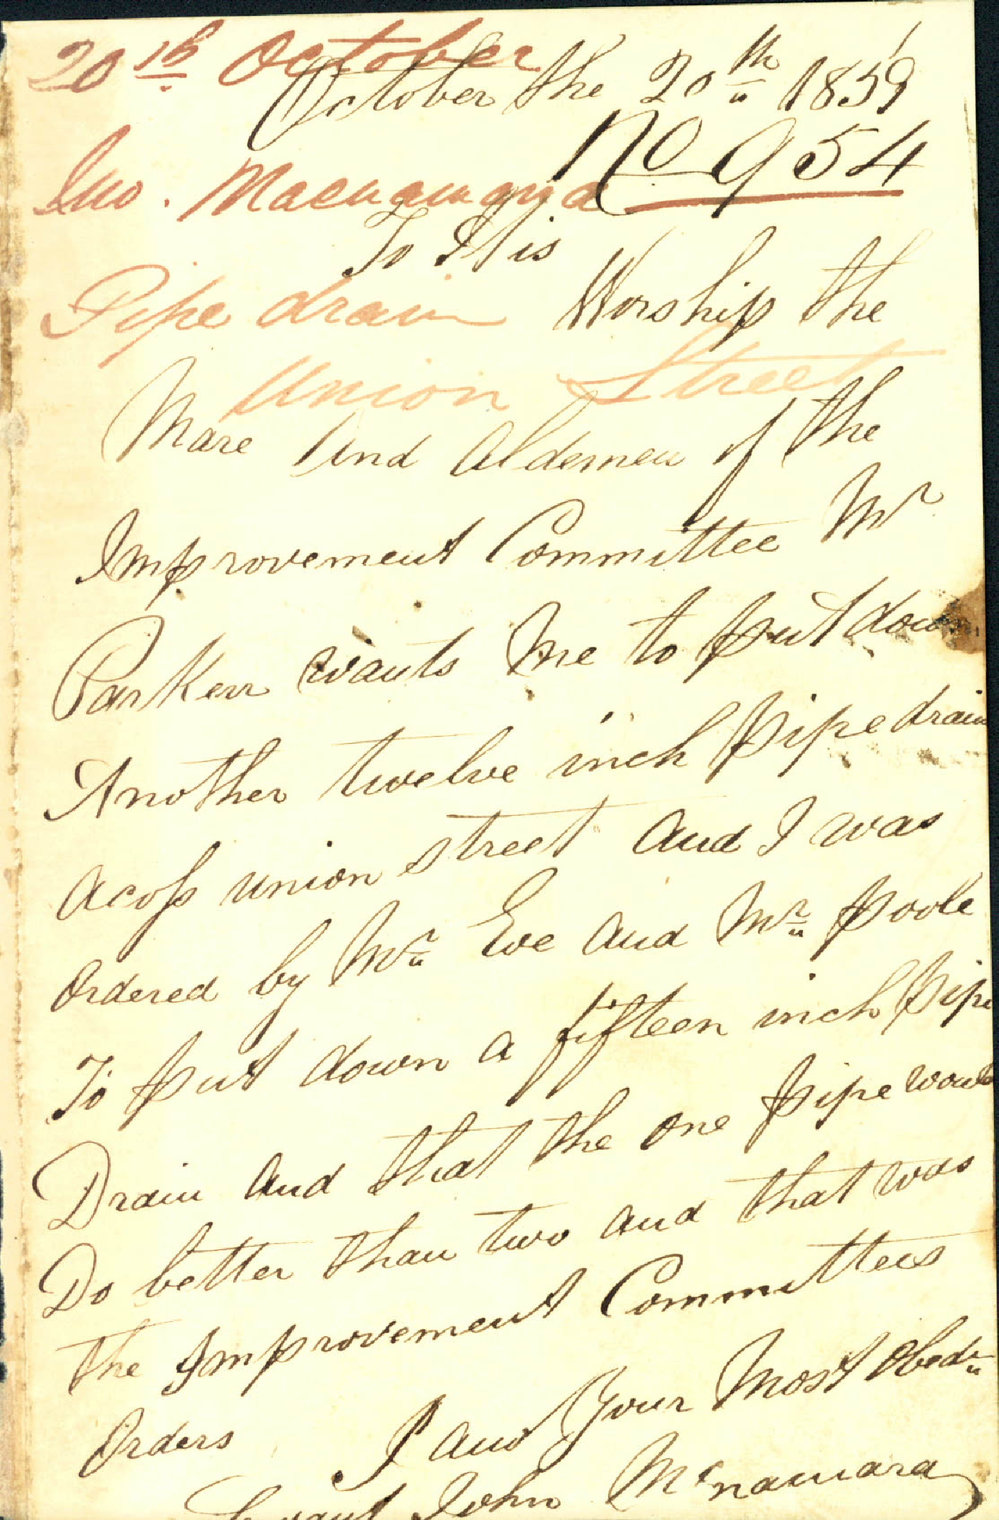 20th October
October the 20th 1859
No 954
Jno. Macnamara
To His
Pipe drain
Worship the
Union Street
Mare And Aldemen of the
Improvement Committee Mr
Parkerr wants Me to put down
Another twelve inch pipe drain
Acoss union street And I was
Ordered by Mr Eve And Mr Poole
To put down a fifteen inch Pipe
Drain And that the One pipe would
Do better than two and that was
The Improvement Committees
Orders I am Your Most Obedt
John McNamara